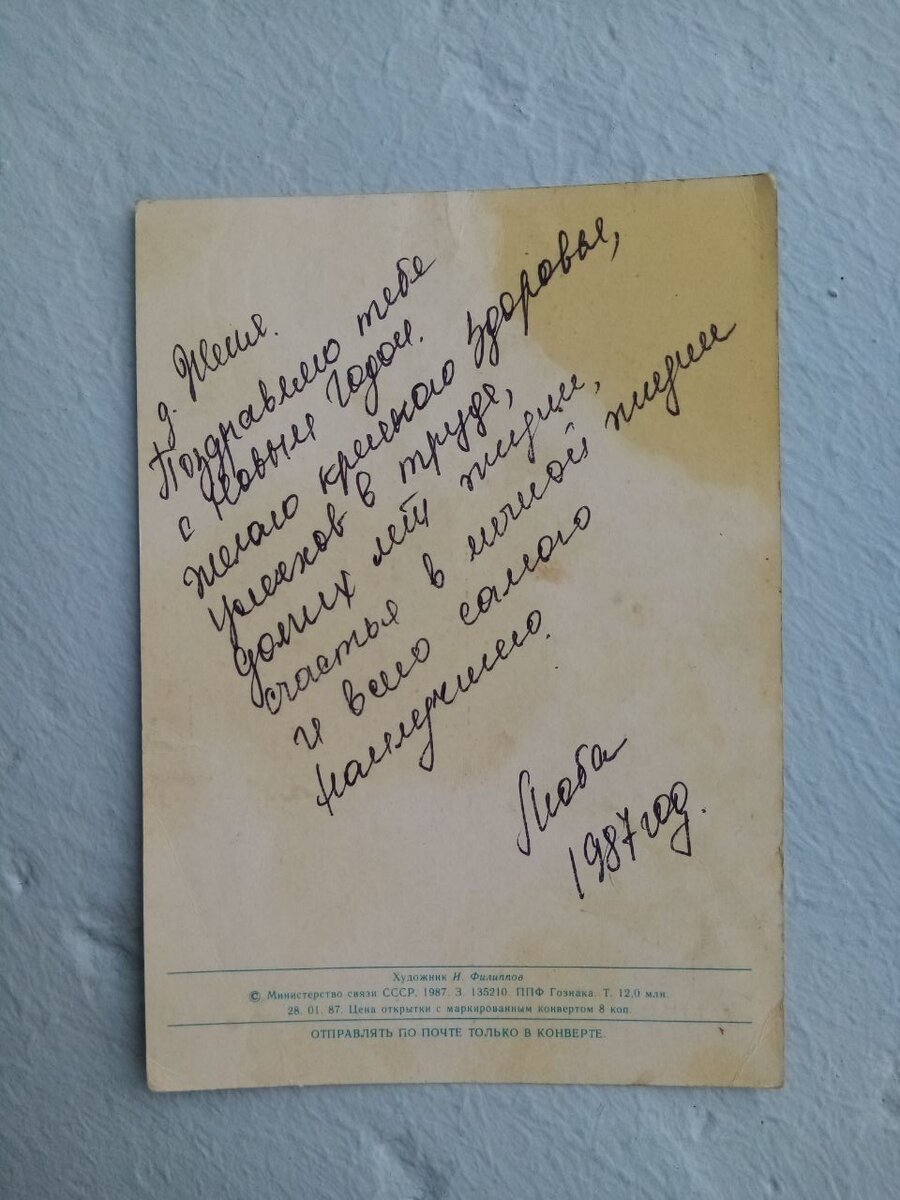 д. Женя.
Поздравляю тебя
с Новым Годом.
Желаю крепкого здоровья,
успехов в труде,
долгих лет жизни,
счастья в личной жизни
и всего самого
наилучшего.
Люба
1987 год.
Художник И. Филиппов
© Министерство связи СССР. 1987. З. 135210. ППФ Гознака. Т. 12,0 млн.
28. 01. 87. Цена открытки с маркированным конвертом 8 коп.
ОТПРАВЛЯТЬ ПО ПОЧТЕ ТОЛЬКО В КОНВЕРТЕ.